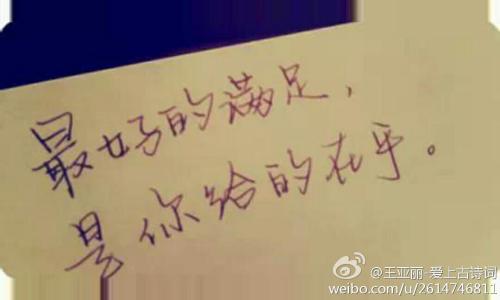 最好的满足，
是你给的在乎。
@王亚丽-爱上古诗词
weibo.com/u/2614746811